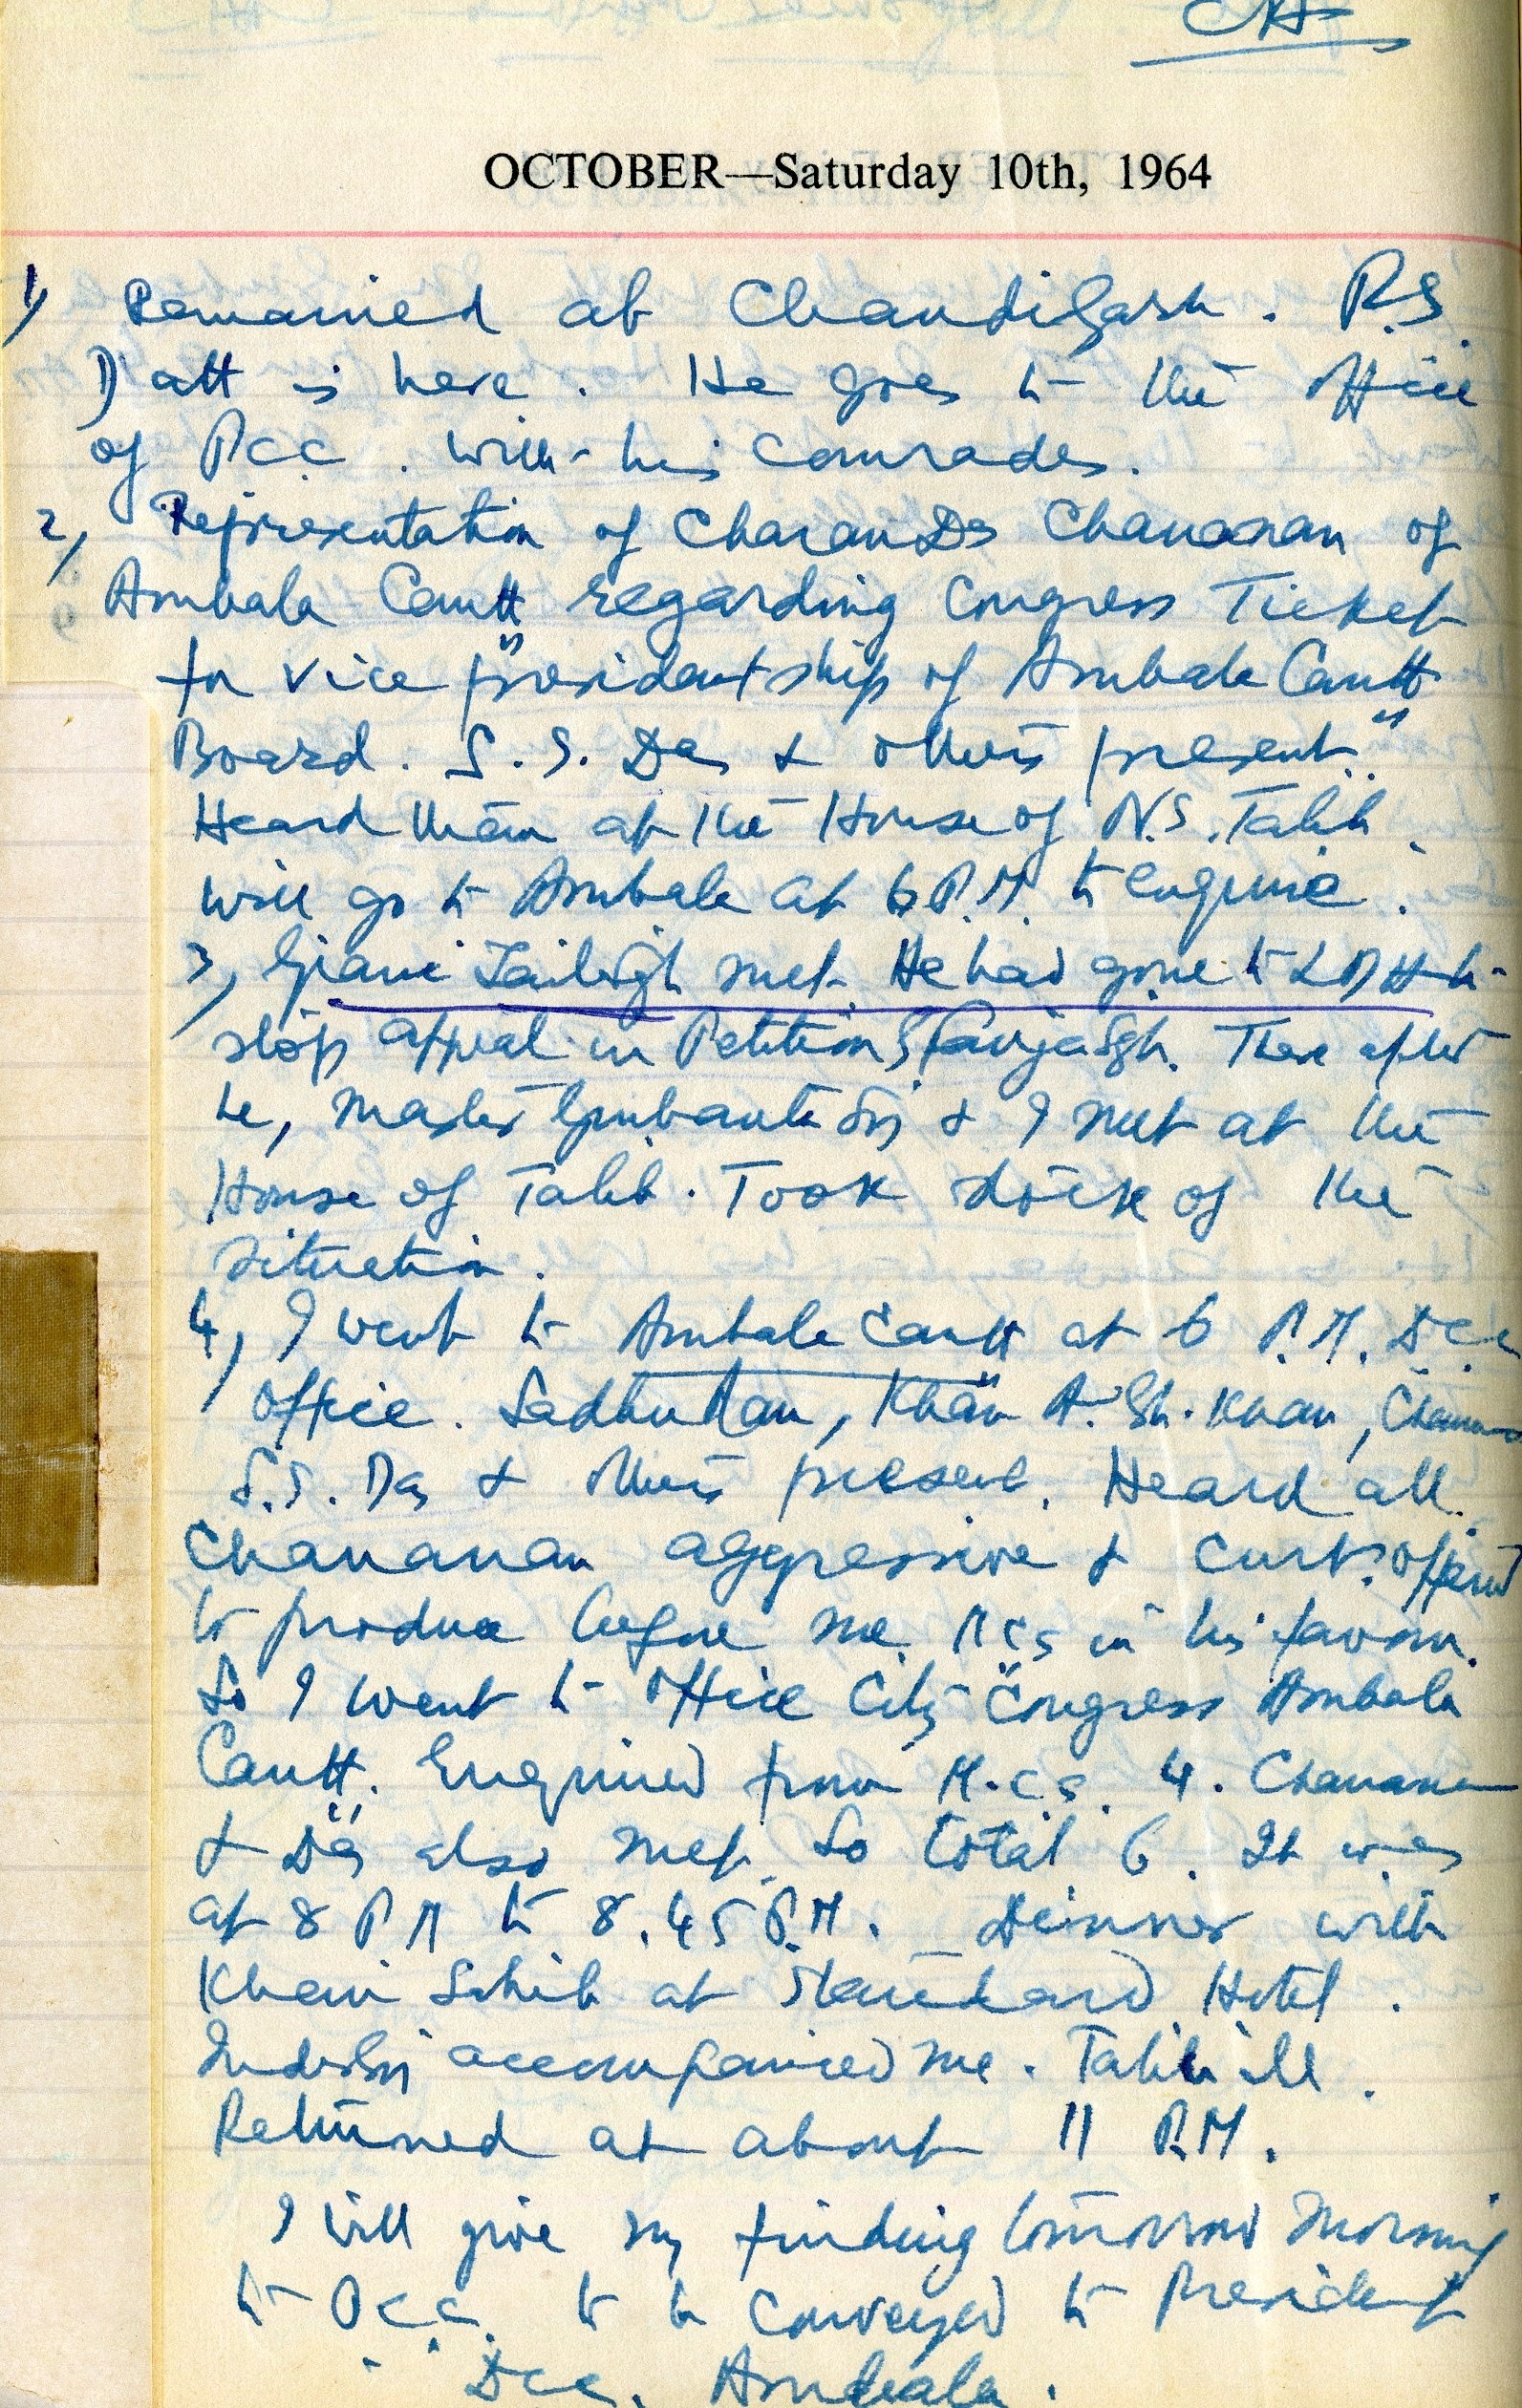 OCTOBER—Saturday 10th, 1964
1) Remained at Chandigarh. R.S.
Datt is here. He goes to the office
of P.C.C. with his comrades.
2) Representation of Charan Das Chananan of
Ambala Cantt regarding Congress Ticket
for vice presidentship of Ambala Cantt
Board. S.S. Das & others present.
Heard them at the House of N.S. Talib.
Will go to Ambala at 6 P.M. to enquire.
3) Giani Zail Singh met. He had gone to
stop appeal in Petition Sgh. There after
he, Master Gurbanta Sgh & I met at the
House of Talib. Took stock of the
situation.
4) I went to Ambala Cantt at 6 P.M. Dcc
office. Sadhu Ram, Khan A. Gh. Khan,
S.S. Das & others present. Heard all.
Chananan aggressive & curt. Offered
to produce before me M.Cs in his favour.
So I went to office City Congress Ambala
Cantt. Enquired from M.C.s. 4. Chananan
& Das also met. So total 6. It was
at 8 PM to 8.45 P.M. Dinner with
Khan Sahib at Standard Hotel.
accompanied me. Talib ill.
Returned at about 11 P.M.
I will give my finding tomorrow morning
to P.C.C. to be conveyed to President
Dcc. Ambala.